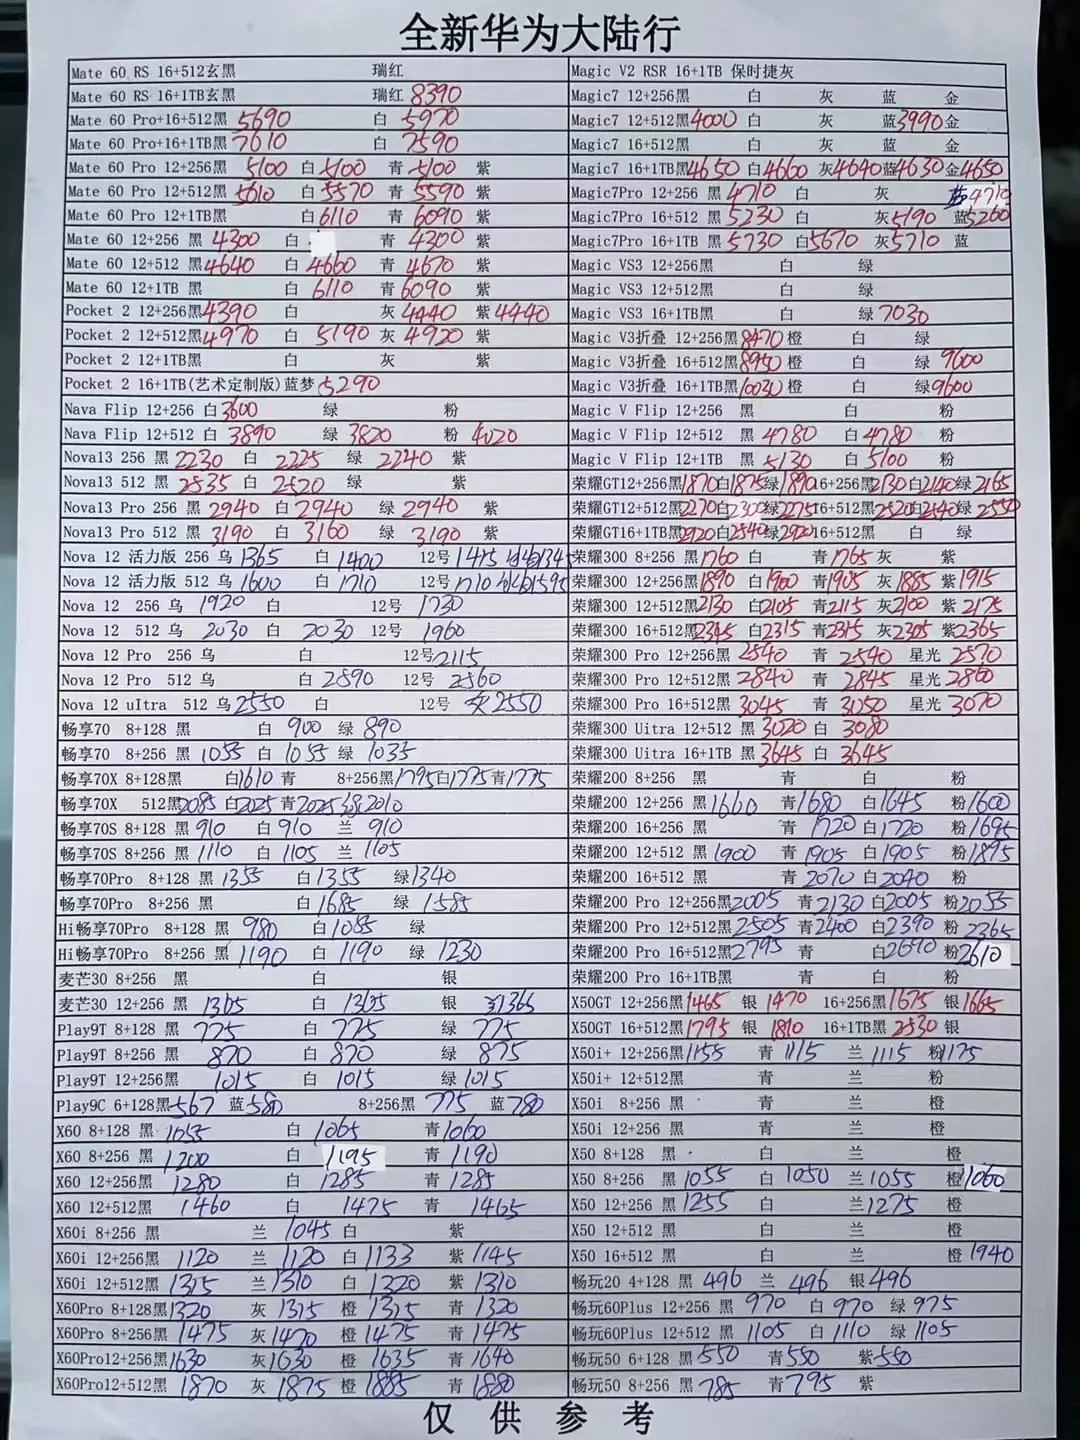 全新华为大陆行
Mate 60 RS 16+512玄黑 瑞红
Mate 60 RS 16+1TB玄黑 瑞红 8390
Mate 60 Pro+16+512黑 5690 白 5970
Mate 60 Pro+16+1TB黑 7610 白 7590
Mate 60 Pro 12+256黑 5100 白 5100 青 5100 紫
Mate 60 Pro 12+512黑 5610 白 5570 青 5590 紫
Mate 60 Pro 12+1TB黑 白 6110 青 6090 紫
Mate 60 12+256 黑 4300 白 青 4300 紫
Mate 60 12+512 黑 4640 白 4660 青 4670 紫
Mate 60 12+1TB 黑 白 6110 青 6090 紫
Pocket 2 12+256黑 4390 白 灰 4440 紫 4440
Pocket 2 12+512黑 4970 白 5190 灰 4920 紫
Pocket 2 12+1TB黑 白 灰 紫
Pocket 2 16+1TB(艺术定制版)蓝梦 5290
Nava Flip 12+256 白 3600 绿 粉
Nava Flip 12+512 白 3890 绿 3820 粉 4020
Nova13 256 黑 2230 白 2225 绿 2240 紫
Nova13 512 黑 2535 白 2520 绿 紫
Nova13 Pro 256 黑 2940 白 2940 绿 2940 紫
Nova13 Pro 512 黑 3190 白 3160 绿 3190 紫
Nova 12 活力版 256 乌 1365 白 1400 12号 1415
Nova 12 活力版 512 乌 1600 白 1710 12号 1710
Nova 12 256 乌 1920 白 12号 1730
Nova 12 512 乌 2030 白 2030 12号 1960
Nova 12 Pro 256 乌 白 12号 2115
Nova 12 Pro 512 乌 白 2590 12号 2560
Nova 12 uItra 512 乌 2550 白 12号 灰 2550
畅享70 8+128 黑 白 900 绿 890
畅享70 8+256 黑 1055 白 1055 绿 1035
畅享70X 8+128黑 白 1610 青 8+256黑 1795 白 1775 青 1775
畅享70X 512黑 2085 白 2025 青 2025 绿 2010
畅享70S 8+128 黑 910 白 910 兰 910
畅享70S 8+256 黑 1110 白 1105 兰 1105
畅享70Pro 8+128 黑 1355 白 1355 绿 1340
畅享70Pro 8+256 黑 白 1685 绿 1585
Hi畅享70Pro 8+128 黑 980 白 1085 绿
Hi畅享70Pro 8+256 黑 1190 白 1190 绿 1230
麦芒30 8+256 黑 白 银
麦芒30 12+256 黑 1365 白 1365 银 1365
Play9T 8+128 黑 775 白 775 绿 775
Play9T 8+256 黑 870 白 870 绿 875
Play9T 12+256黑 1015 白 1015 绿 1015
Play9C 6+128黑 567 蓝 580 8+256黑 775 蓝 780
X60 8+128 黑 1055 白 1065 青 1060
X60 8+256 黑 1200 白 1195 青 1190
X60 12+256黑 1280 白 1285 青 1285
X60 12+512黑 1460 白 1475 青 1465
X60i 8+256 黑 兰 1045 白 紫
X60i 12+256黑 1120 兰 1120 白 1133 紫 1145
X60i 12+512黑 1315 兰 1310 白 1320 紫 1310
X60Pro 8+128黑 1320 灰 1315 橙 1315 青 1320
X60Pro 8+256黑 1475 灰 1470 橙 1475 青 1475
X60Pro12+256黑 1630 灰 1630 橙 1635 青 1640
X60Pro12+512黑 1870 灰 1875 橙 1885 青 1880
Magic V2 RSR 16+1TB 保时捷灰
Magic7 12+256黑 白 灰 蓝 金
Magic7 12+512黑 4000 白 灰 蓝 3990 金
Magic7 16+512黑 白 灰 蓝 金
Magic7 16+1TB黑 4650 白 4660 灰 4640 蓝 4630 金 4650
Magic7Pro 12+256 黑 4710 白 灰 蓝 4710
Magic7Pro 16+512 黑 5230 白 灰 5190 蓝 5260
Magic7Pro 16+1TB 黑 5730 白 5670 灰 5710 蓝
Magic VS3 12+256黑 白 绿
Magic VS3 12+512黑 白 绿
Magic VS3 16+1TB黑 白 绿 7030
Magic V3折叠 12+256黑 8470 橙 白 绿
Magic V3折叠 16+512黑 8950 橙 白 绿 9600
Magic V3折叠 16+1TB黑 10030 橙 白 绿 9600
Magic V Flip 12+256 黑 白 粉
Magic V Flip 12+512 黑 4780 白 4780 粉
Magic V Flip 12+1TB 黑 5130 白 5100 粉
荣耀GT12+256黑 1870 白 1875 绿 1890 16+256黑 2130 白 2140 绿 2165
荣耀GT12+512黑 2270 白 2300 绿 2275 16+512黑 2520 白 2540 绿 2550
荣耀GT16+1TB黑 2920 白 2540 绿 2920 16+512黑 白 绿
荣耀300 8+256 黑 1760 白 青 1765 灰 紫
荣耀300 12+256黑 1890 白 1900 青 1905 灰 1885 紫 1915
荣耀300 12+512黑 2130 白 2105 青 2115 灰 2100 紫 2175
荣耀300 16+512黑 2345 白 2315 青 2315 灰 2305 紫 2365
荣耀300 Pro 12+256黑 2540 青 2540 星光 2570
荣耀300 Pro 12+512黑 2840 青 2845 星光 2860
荣耀300 Pro 16+512黑 3045 青 3050 星光 3070
荣耀300 Uitra 12+512 黑 3020 白 3080
荣耀300 Uitra 16+1TB 黑 3645 白 3645
荣耀200 8+256 黑 青 白 粉
荣耀200 12+256 黑 1660 青 1680 白 1645 粉 1600
荣耀200 16+256 黑 青 1720 白 1720 粉 1695
荣耀200 12+512 黑 1900 青 1905 白 1905 粉 1895
荣耀200 16+512 黑 青 2070 白 2040 粉
荣耀200 Pro 12+256黑 2005 青 2130 白 2005 粉 2055
荣耀200 Pro 12+512黑 2505 青 2400 白 2390 粉 2365
荣耀200 Pro 16+512黑 2795 青 白 2690 粉 2610
荣耀200 Pro 16+1TB黑 青 白 粉
X50GT 12+256黑 1465 银 1470 16+256黑 1675 银 1665
X50GT 16+512黑 1795 银 1810 16+1TB黑 2530 银
X50i+ 12+256黑 1155 青 1115 兰 1115 粉 1175
X50i+ 12+512黑 青 兰 粉
X50i 8+256黑 青 兰 橙
X50i 12+256 黑 青 兰 橙
X50 8+128 黑 白 兰 橙
X50 8+256 黑 1055 白 1050 兰 1055 橙 1060
X50 12+256 黑 1255 白 兰 1275 橙
X50 12+512 黑 白 兰 橙
X50 16+512 黑 白 兰 橙 1940
畅玩20 4+128 黑 496 兰 496 银 496
畅玩60Plus 12+256 黑 970 白 970 绿 975
畅玩60Plus 12+512 黑 1105 白 1110 绿 1105
畅玩50 6+128 黑 550 青 550 紫 550
畅玩50 8+256 黑 785 青 795 紫
仅供参考